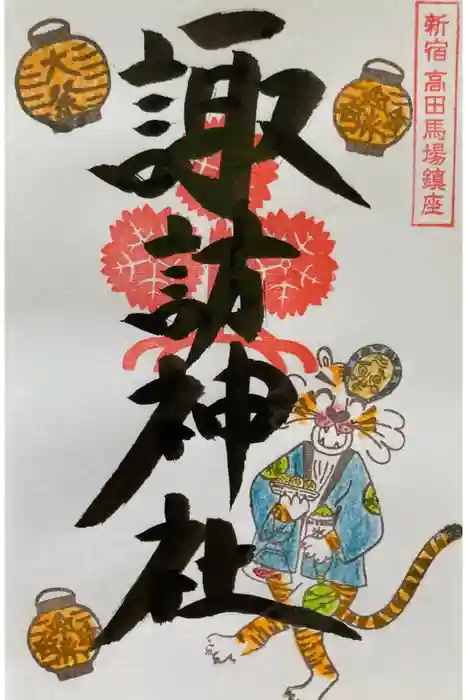 新宿 高田馬場鎮座
諏訪神社
大祭